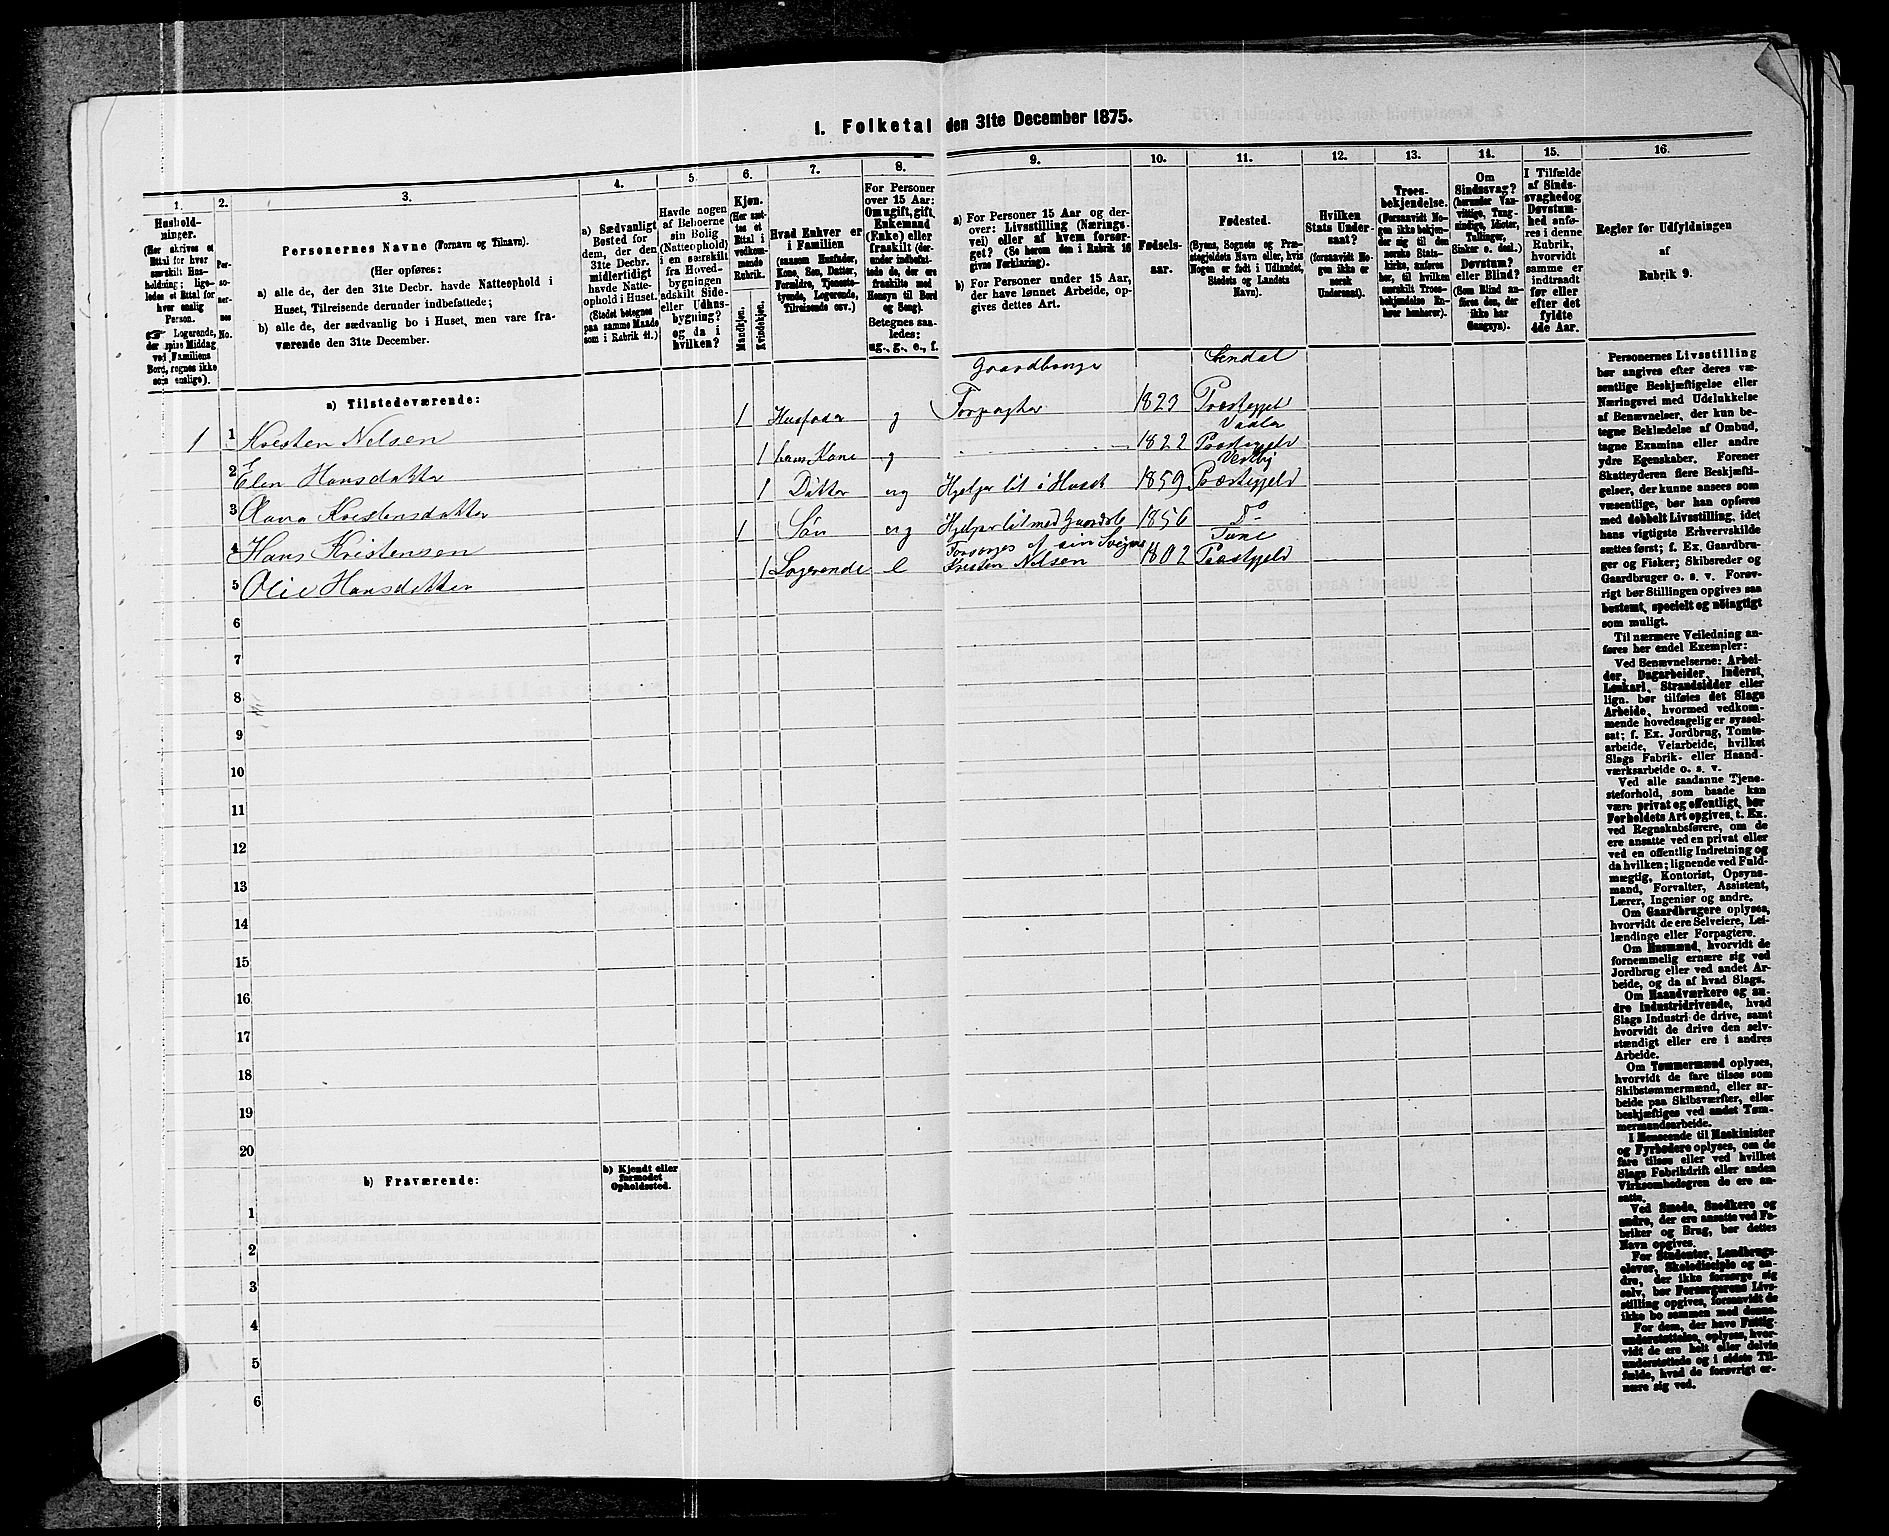 1. Folketal den 31te December 1875.
1.
2.
3.
4.
5.
6.
7.
8.
9.
10.
11.
12.
13.
14.
15.
16.
Hushold-
ninger.
(Her skrives et
Ettal for hver
særskilt Hus-
holdning; lige-
ledes et Ettal for
hver enslig
Person.
☞ Logerende,
der spise Middag
ved Familiens
Bord, regnes ikke
som enslige).
Per-
so-
ner-
nes
No.
Personernes Navne (Fornavn og Tilnavn).
(Her opføres:
a) alle de, der den 31te Decbr. havde Natteophold i
Huset, Tilreisende derunder indbefattede;
b) alle de, der sædvanlig bo i Huset, men vare fra-
værende den 31te December.
a) Sædvanligt
Bosted for
dem, der den
31te Decbr.
midlertidigt
havde Natte-
ophold i Huset.
(Stedet betegnes
paa samme Maade
som i Rubrik 11.)
Havde nogen
af Beboerne
sin Bolig
(Natteophold)
i en særskilt
fra Hoved-
bygningen
adskilt Side-
eller Udhus-
bygning?
og da i
hvilken?
Kjøn.
(Her sæt-
tes et
Ettal i
vedkom-
mende
Rubrik.
Mandkjøn.
Kvindekjøn.
Hvad Enhver er
i Familien
(saasom Husfader,
Kone, Søn, Datter,
Forældre, Tjeneste-
tyende, Logerende,
Tilreisende osv.)
For Personer
over 15 Aar:
Om ugift, gift,
Enkemand
(Enke) eller
fraskilt (der-
under indbefat-
tede de, der ere
fraskilte med
Hensyn til Bord
og Seng).
Betegnes saa-
ledes:
ug., g., e., f.
a) For Personer 15 Aar og der-
over: Livsstilling (Nærings-
vei) eller af hvem forsør-
get? (Se herom den i Rubrik 16
givne Forklaring).
b) For Personer under 15 Aar,
der have lønnet Arbeide, op-
gives dettes Art.
Fødsels-
aar.
Fødested.
(Byens, Sognets og Præ-
stegjeldets Navn eller, hvis
Nogen er født i Udlandet,
Stedets og Landets
Navn).
Hvilken
Stats Under-
saat?
(forsaavidt No-
gen ikke er
norsk
Undersaat).
Troes-
bekjendelse.
(Forsaavidt No-
gen ikke bekjen-
der sig til den
norske Stats-
kirke, anføres
her, til hvilken
særskilt Troes-
bekjendelse En-
hver henhører).
Om
Sindssvag?
(herunder Van-
vittige, Tung-
sindige, Idioter,
Tullinger,
Sinker o. desl.)
Døvstum?
eller Blind?
(Som Blind an-
føres den, der
ikke har
Gangsyn).
I Tilfælde
af Sinds-
svaghed og
Døvstum-
hed anfø-
res i denne
Rubrik,
hvorvidt
samme er
indtraadt
før eller
efter det
fyldte
4de Aar.
Regler for Udfyldningen
af
Rubrik 9.
a) Tilstedeværende:
Gaardbruger Vendal
1 1 Kristen Nelsen 1 Husfader g Forpagter 1823 Præstegjeld
Vaaler
2 Elen Hansdatter 1 hans Kone g 1822 Præstegjeld
Vestby
3 Anna Kristensdatter 1 Datter ug Hjelper til i Huset 1859 Præstegjeld
4 Hans Kristensen 1 Søn ug Hjelper til med Gaardsb 1856 Do
Forsørges af sin Svigers Tune
5 Olie Hansdatter 1 Logerende e Kristen Nelsen 1802 Præstegjeld
6
7
8
9
10
11
12
13
14
15
16
17
18
19
20
b) Fraværende:
b) Kjendt eller
formodet
Opholdssted.
1
2
3
4
5
6
Personernes Livsstilling
bør angives efter deres væ-
sentlige Beskjæftigelse eller
Næringsvei med Udelukkelse
af Benævnelser, der kun be-
tegne Beklædelse af Ombud,
tagne Examina eller andre
ydre Egenskaber. Forener
Skatteyderen flere Beskjæfti-
gelser, der kunne ansees som
væsentlige, bør han opføres
med dobbelt Livsstilling, idet
hans vigtigste Erhvervskilde
sættes først; f. Ex. Gaardbru-
ger og Fisker; Skibsreder og
Gaardbruger o. s. v. Forøv-
rigt bør Stillingen opgives saa
bestemt, specielt og nöiagtigt
som muligt.
Til nærmere Veiledning an-
føres her endel Exempler:
Ved Benævnelserne: Arbei-
der, Dagarbeider, Inderst,
Løskarl, Strandsidder eller
lign. bør tilføies det Slags
Arbeide, hvormed vedkom-
mende hovedsagelig er syssel-
sat; f. Ex. Jordbrug, Tomte-
arbeide, Veiarbeide, hvilket
Slags Fabrik- eller Haand-
værksarbeide o. s. v.
Ved alle saadanne Tjene-
steforhold, som baade kan
være privat og offentligt, bør
Forholdets Art opgives, t. Ex.
ved Regnskabsførere, om de
ere ansatte ved en privat eller
ved en offentlig Indretning og
da hvilken; lignende ved Fuld-
mægtig, Kontorist, Opsyns-
mand, Forvalter, Assistent,
Lærer, Ingeniør og andre.
Om Gaardbrugere oplyses,
hvorvidt de ere Selveiere, Lei-
lændinge eller Forpagtere.
Om Husmænd, hvorvidt de
fornemmelig ernære sig ved
Jordbrug eller ved andet Ar-
beide, og da af hvad Slags.
Om Haandværkere og an-
dre Industridrivende, hvad
Slags Industri de drive, samt
hvorvidt de drive den selv-
stændigt eller ere i andres
Arbeide.
Om Tømmermænd oplyses,
hvorvidt de fare tilsøs som
Skibstømmermænd, eller ar-
beide paa Skibsværfter, eller
beskjæftiges ved andet Tøm-
mermandsarbeide.
I Henseende til Maskinister
og Fyrbødere oplyses, om de
fare tilsøs eller ved hvilket
Slags Fabrikdrift eller anden
Virksomhedsgren de ere an-
satte.
Ved Smede, Snedkere og
andre, der ere ansatte ved Fa-
briker og Brug, bør dettes
Navn opgives.
For Studenter, Landbrugs-
elever, Skoledisciple og an-
dre, der ikke forsørge sig
selv, bør Forsørgerens Livs-
stilling opgives, forsaavidt de
ikke bo sammen med denne.
For dem, der have Fattig-
understøttelse, oplyses, hvor-
vidt de ere helt eller delvis
understøttede og i sidste Til-
fælde, hvad de forøvrigt er-
nære sig ved.